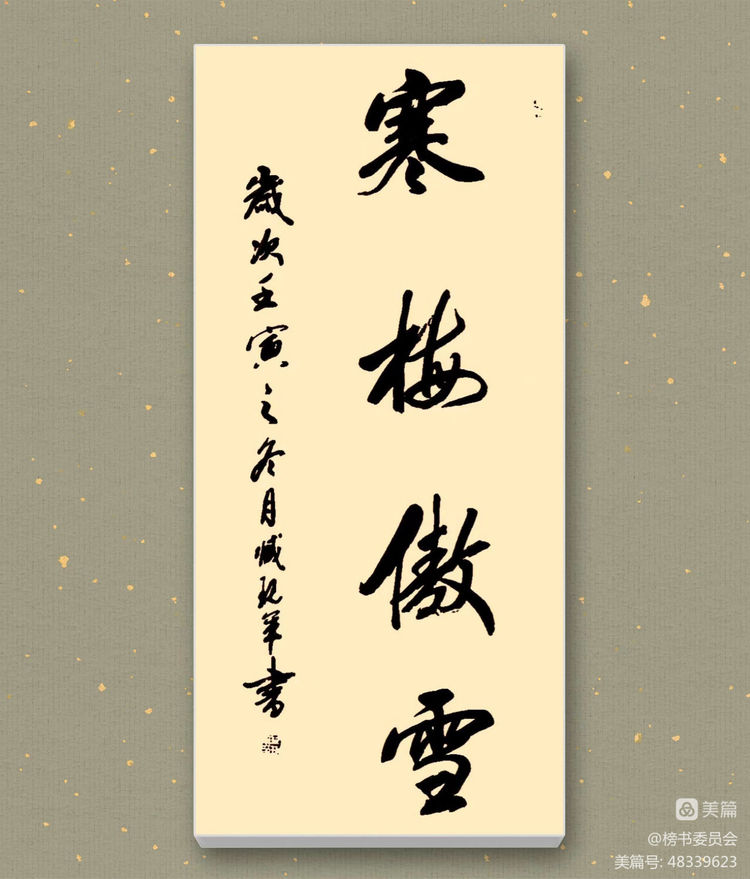 寒梅傲雪
歲次壬寅之冬月臧現軍書
美篇
@榜书委员会
美篇号: 48339623